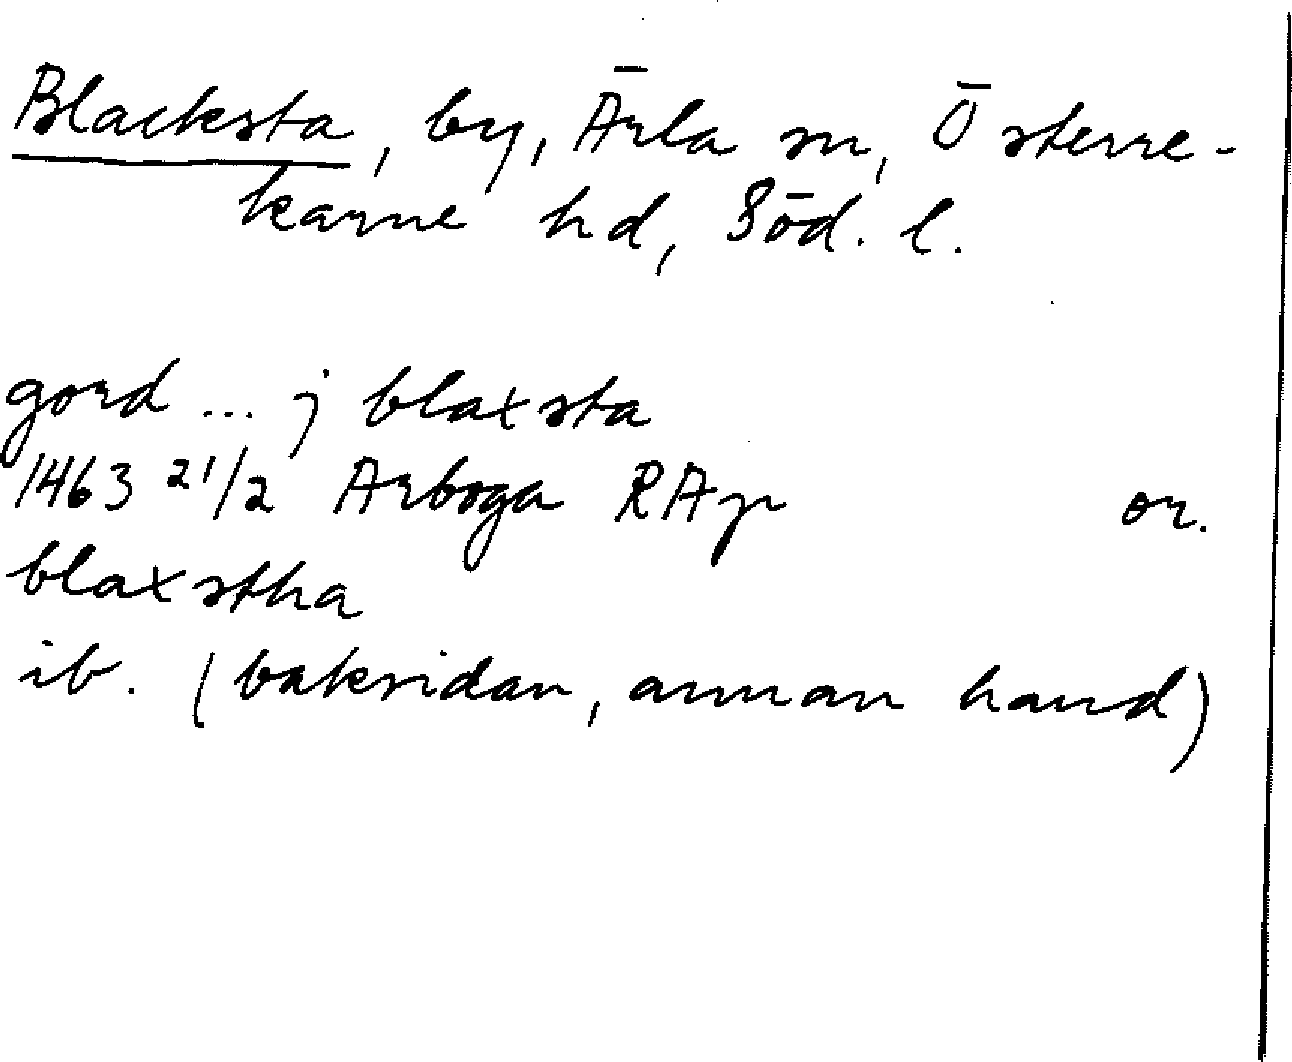 Blacksta, by, Ärla sn, Österre-
karne hd, Söd. l.
gord ... j blaxsta
1463 21/2 Arboga RAp or.
blaxstha
ib. (baksidan, annan hand)